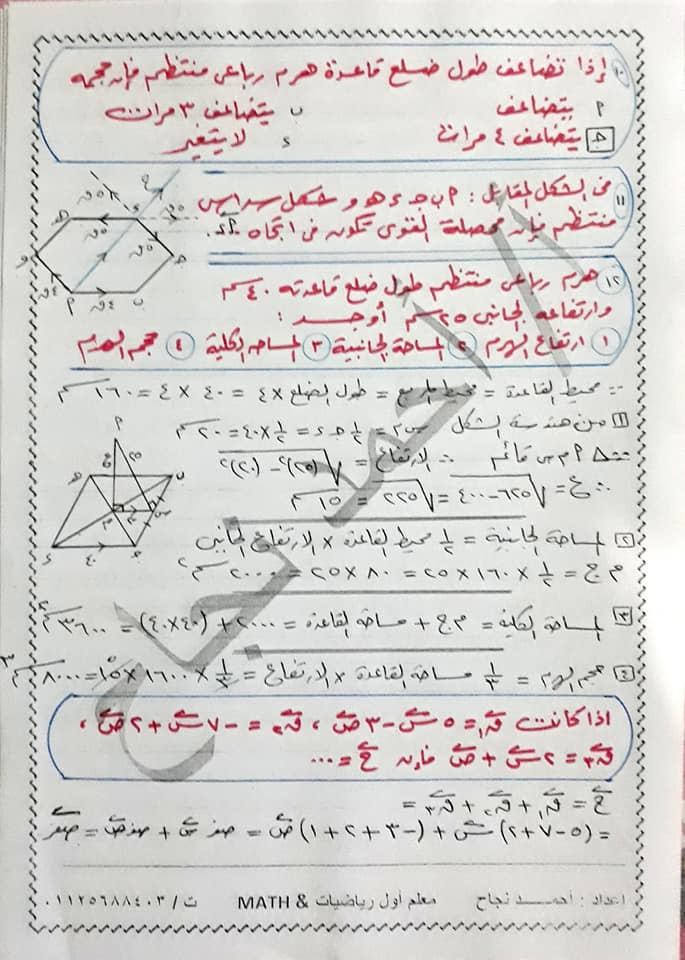 ١٠ إذا تضاعف طول ضلع قاعدة هرم رباعى منتظم فإن حجمه
٢ يتضاعف ب يتضاعف ٣ مرات
ج يتضاعف ٤ مرات ء لا يتغير
١١ فى الشكل المقابل : ٢ ب جـ ء هـ و شكل سداسى
منتظم فإن محصلة القوى تكون فى اتجاه ٢ء
١٢ هرم رباعى منتظم طول ضلع قاعدته ٤٠ سم
وارتفاعه الجانبى ٢٥ سم أوجد :
١ ارتفاع الهرم ٢ المساحة الجانبية ٣ المساحة الكلية ٤ حجم الهرم
∵ محيط القاعدة = محيط المربع = طول الضلع × ٤ = ٤٠ × ٤ = ١٦٠ سم
١ من هندسة الشكل س م = ½ جـ ء = ½ × ٤٠ = ٢٠ سم
∵ △ ٢ م س قائم ∴ الارتفاع = √(٢٥)² - (٢٠)²
∴ ع = √٦٢٥ - ٤٠٠ = √٢٢٥ = ١٥ سم
٢ المساحة الجانبية = ½ محيط القاعدة × الارتفاع الجانبى
م ج = ½ × ١٦٠ × ٢٥ = ٨٠ × ٢٥ = ٢٠٠٠ سم²
٣ المساحة الكلية = م ج + مساحة القاعدة = ٢٠٠٠ + (٤٠ × ٤٠) = ٣٦٠٠ سم²
٤ حجم الهرم = ⅓ مساحة القاعدة × الارتفاع = ⅓ × ١٦٠٠ × ١٥ = ٨٠٠٠ سم³
اذا كانت ق١ = ٥ س - ٣ ص ، ق٢ = - ٧ س + ٢ ص ،
ق٣ = ٢ س + ص فإن ح = ...
ح = ق١ + ق٢ + ق٣ =
= (٥ - ٧ + ٢) س + (- ٣ + ٢ + ١) ص = صفر س + صفر ص = صفر
اعداد : أحمد نجاح معلم أول رياضيات & MATH ت / ٠١١٢٥٦٨٨٤٠٣
أ / أحمد نجاح